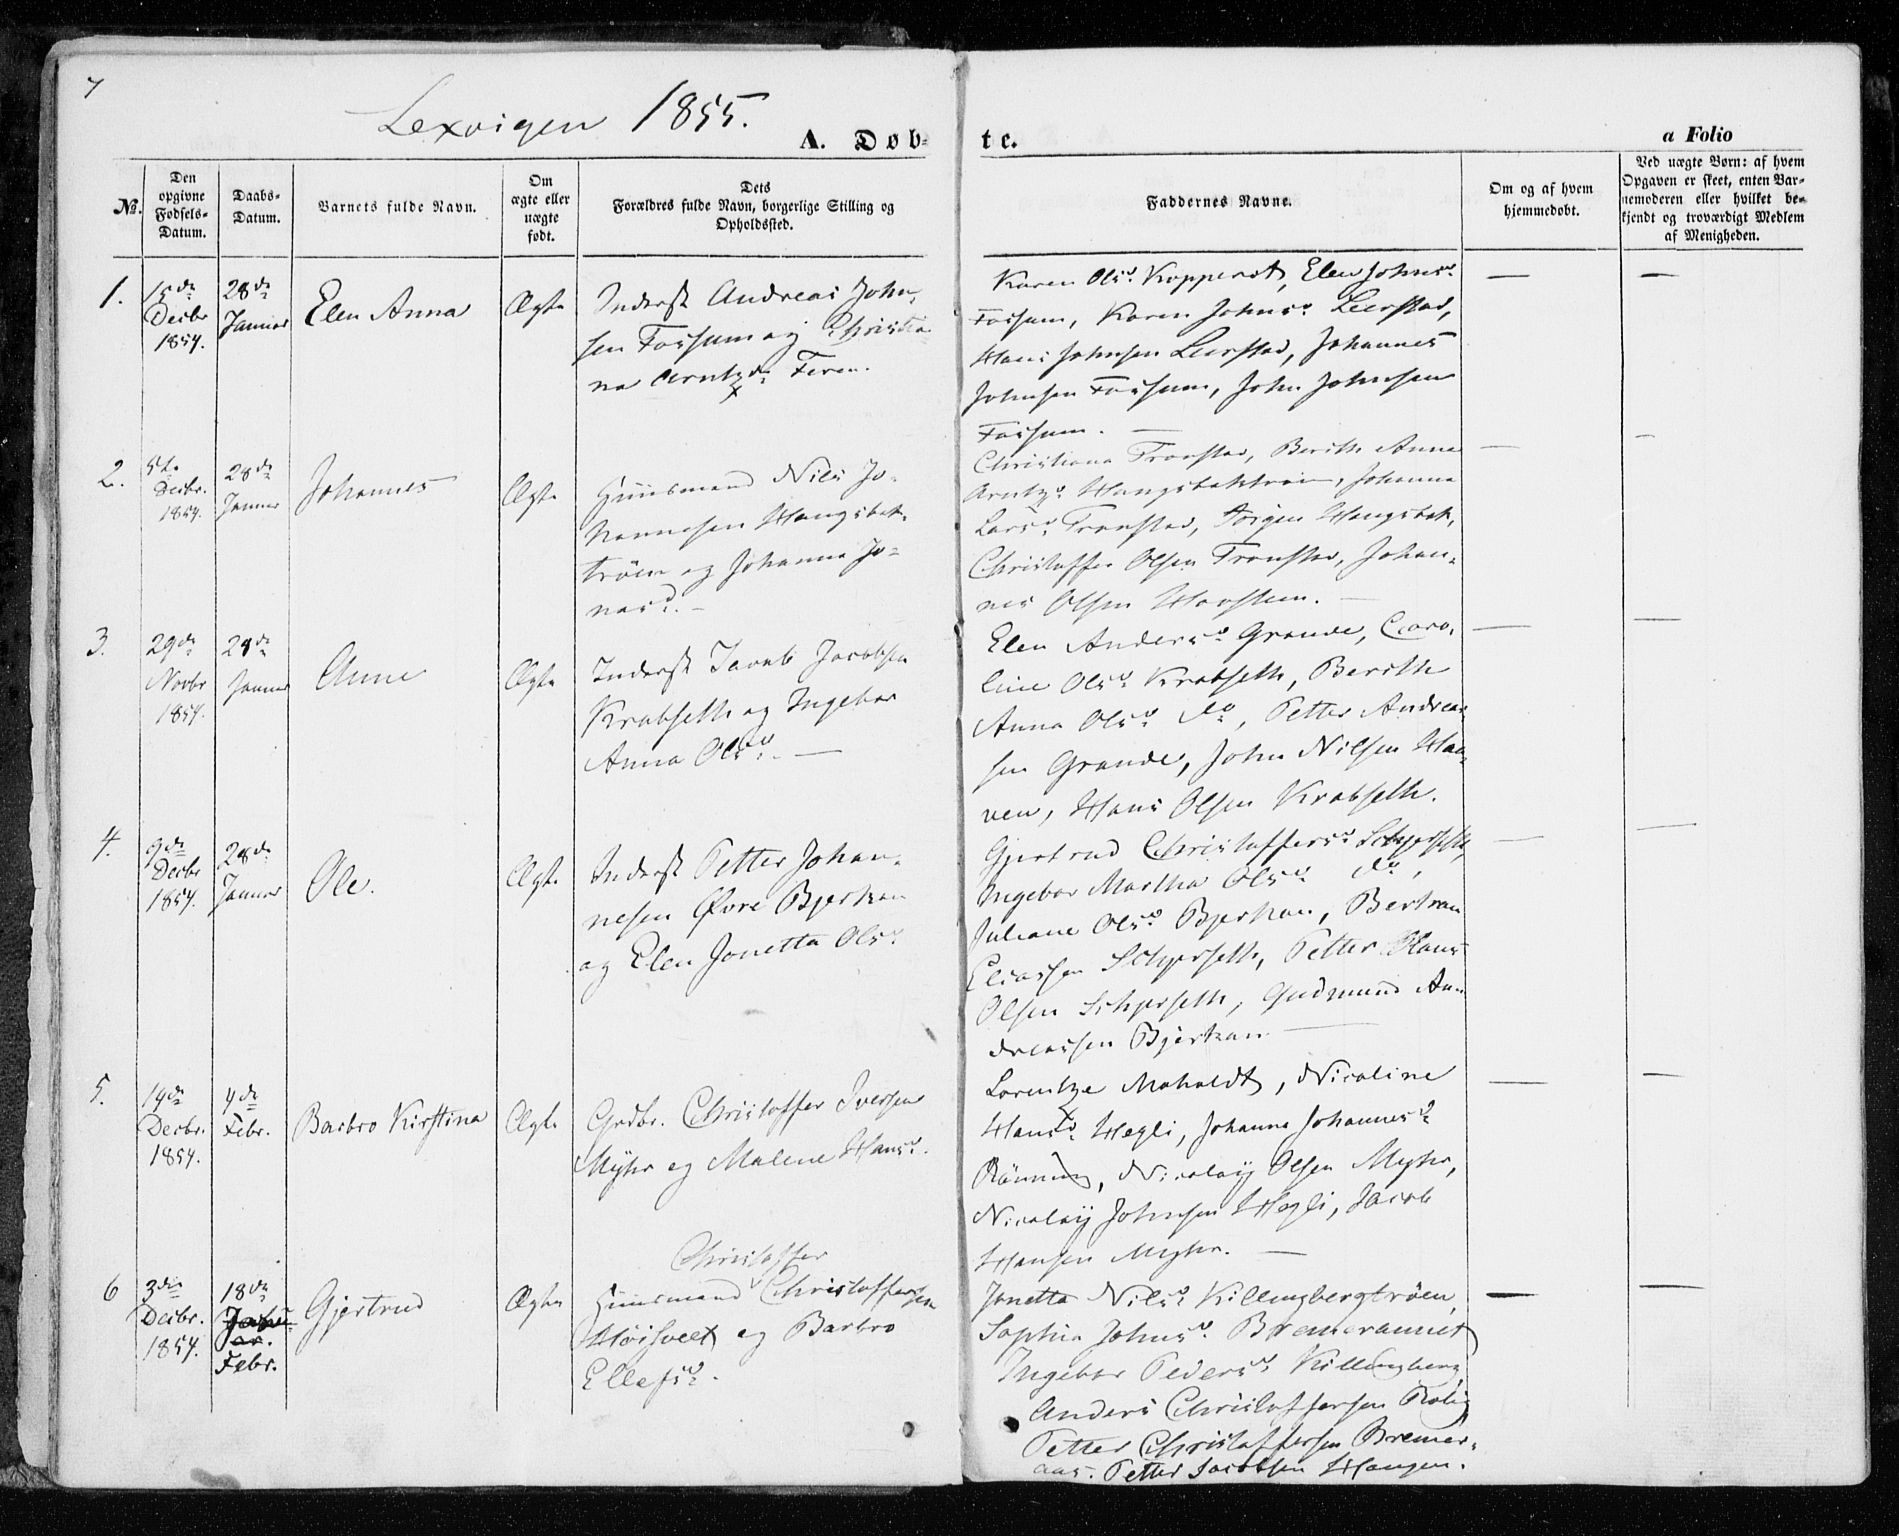 7
Lexvigen 1855.
A. Døb-
te.
a Folio
№.
Den
opgivne
Fødsels-
Datum.
Daabs-
Datum.
Barnets fulde Navn.
Om
ægte eller
uægte
født.
Dets
Forældres fulde Navn, borgerlige Stilling og
Opholdssted.
Faddernes Navne.
Om og af hvem
hjemmedøbt.
Ved uægte Børn: af hvem
Opgaven er skeet, enten Bar-
nemoderen eller hvilket be-
kjendt og troværdigt Medlem
af Menigheden.
1.
15de
Decbr
1854.
28de
Januar
Elen Anna
Ægte
Inderst Andreas John-
sen Fossum og Christia
na Arntzd. Feren.
Karen Olsd. Kopperst, Elen Johnsd.
Fossum, Karen Johnsd. Leerstad,
Hans Johnsen Leerstad, Johannes
Johnsen Fossum, John Johnsen
Fossum. —
2.
5te
Decbr.
1854.
28de
Januar
Johannes
Ægte
Huusmand Nils Jo-
hannesen Hangsbak-
trøen og Johanna Jo-
nasd. —
Christiana Tronstad, Berith Anna
Arntzd. Hangsbaktrøen, Johanna
Larsd. Tronstad, Jørgen Hangsbak,
Christoffer Olsen Tronstad, Johan-
nes Olsen Haustein. —
3.
29de
Novbr
1854.
28de
Januar
Anne
Ægte
Inderst Jacob Jacobsen
Krabseth og Ingebor
Anna Olsd. —
Elen Andersd. Grande, Caro-
line Olsd. Krabseth, Berith
Anna Olsd. do, Petter Andrea-
sen Grande, John Nilsen Ha-
ven, Hans Olsen Krabseth.
4.
9de
Decbr
1854.
28de
Januar
Ole.
Ægte
Inderst Petter Johan-
nesen Øvre Bjerkan
og Elen Jonetta Olsd.
Gjertrud Christoffersd. Schjerseth,
Ingebor Martha Olsd. do,
Juliane Olsd. Bjerkan, Bertran
Eliassen Schjerseth, Petter Hans
Olsen Schjerseth, Gudmund An-
dreassen Bjerkan —
5.
14de
Decbr.
1854.
4de
Febr.
Barbro Kirstina
Ægte
Grdbr. Christoffer Iversen
Myhr og Malene Hansd.
Lorentze Moholdt, Nicoline
Hansd. Hegli, Johanna Johannesd.
Rønning, Nicolay Olsen Myhr,
Nicolay Johnsen Hegli, Jacob
Hansen Myhr. —
6
3die
Decbr.
1854.
18de
Janu-
ar.
Febr.
Gjertrud
Ægte
Christoffer
Huusmand Christoffersen
Høisveet og Barbro
Ellefsd.
Jonetta Nilsd. Killingbergtrøen,
Sophia Johnsd. Bremeraunet
Ingebor Pedersd. Killingberg,
Anders Christoffersen Rolig
Petter Christoffersen Bremer-
aas. Petter Jacobsen Haugen.